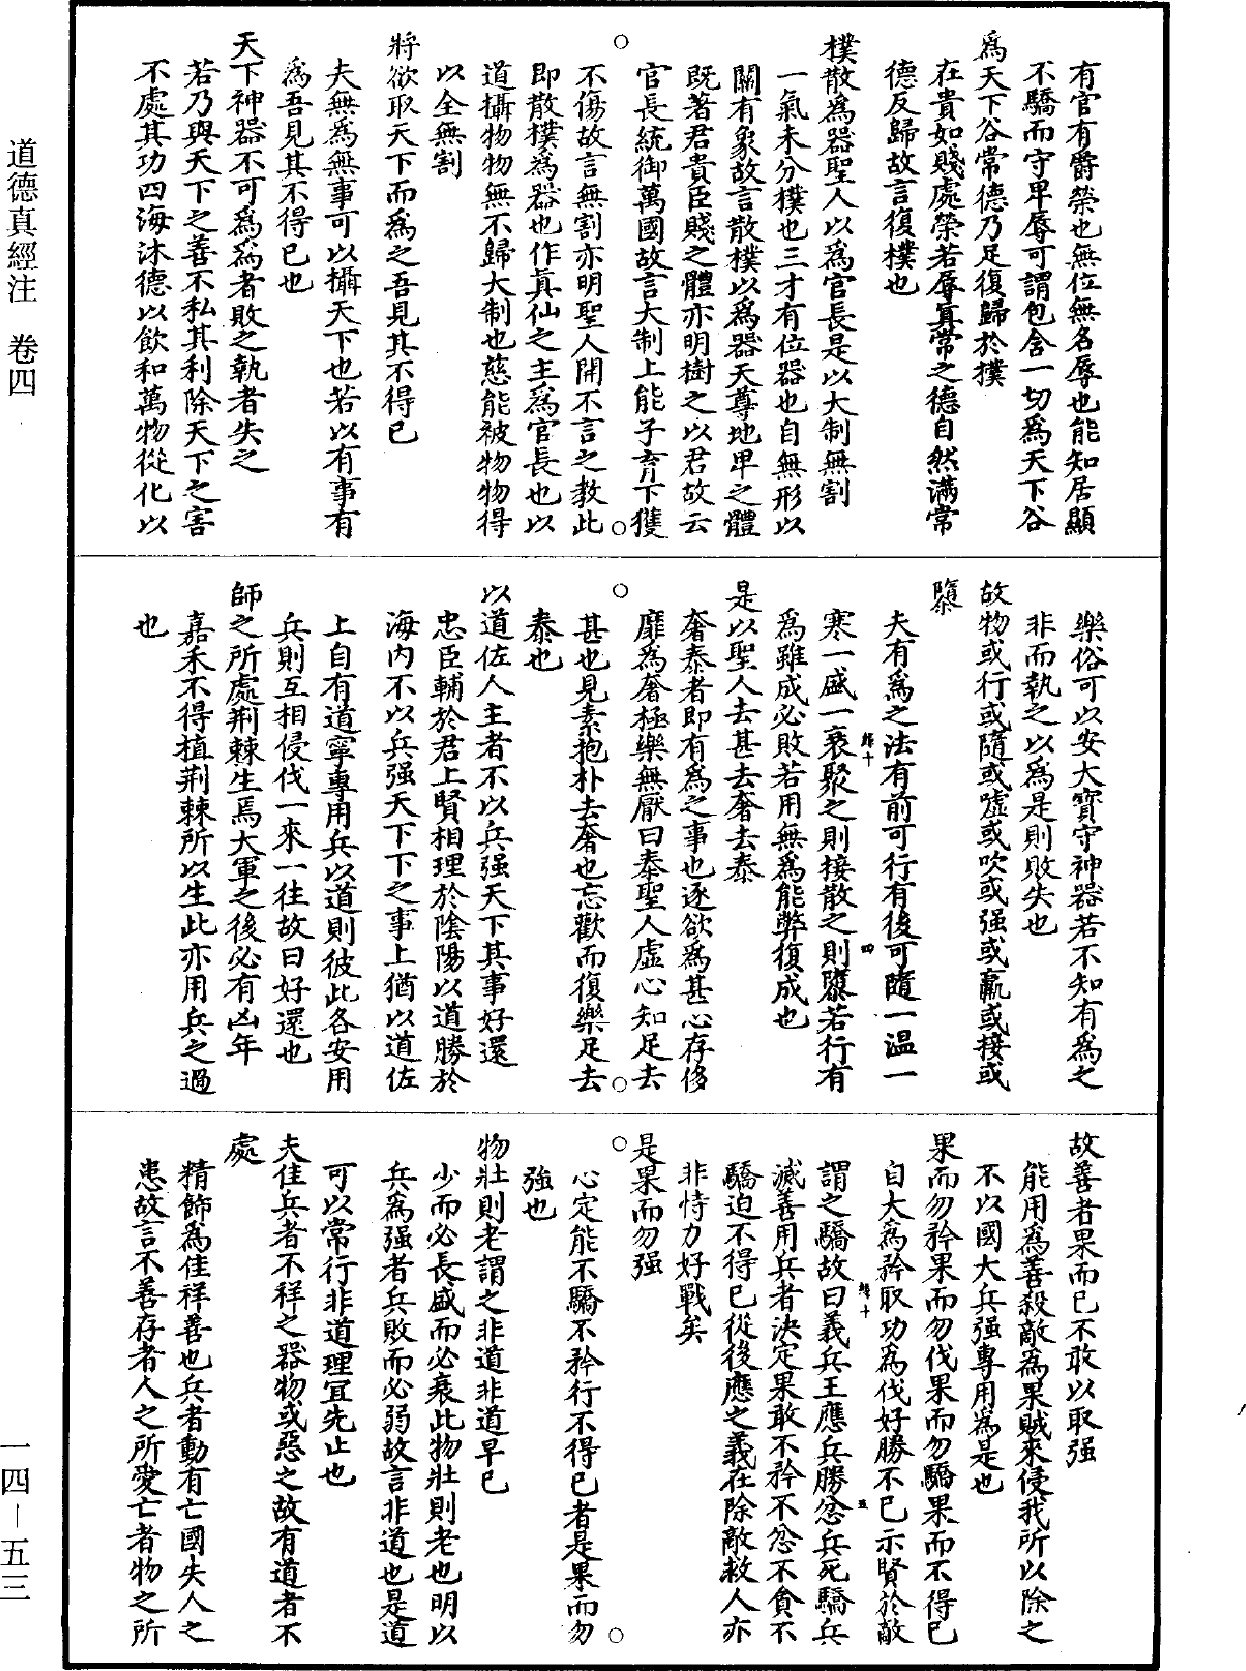 有官有爵榮也無位無名辱也能知居顯
不驕而守卑辱可謂包含一切爲天下谷
爲天下谷常德乃足復歸於樸
在貴如賤處榮若辱真常之德自然滿常
德反歸故言復樸也
樸散爲器聖人以爲官長是以大制無割
一氣未分樸也三才有位器也自無形以
關有象故言散樸以爲器天尊地卑之體
既著君貴臣賤之體亦明樹之以君故云
官長統御萬國故言大制上能子育下獲
不傷故言無割亦明聖人開不言之教此
即散樸爲器也作真仙之主爲官長也以
道攝物物無不歸大制也慈能被物物得
以全無割
將欲取天下而爲之吾見其不得已
夫無爲無事可以攝天下也若以有事有
爲吾見其不得已也
天下神器不可爲爲者敗之執者失之
若乃與天下之善不私其利除天下之害
不處其功四海沐德以飲和萬物從化以
樂俗可以安大寶守神器若不知有爲之
非而執之以爲是則敗失也
故物或行或隨或噓或吹或强或羸或接或
隳
夫有爲之法有前可行有後可隨一温一
寒一盛一衰聚之則接散之則隳若行有
爲雖成必敗若用無爲能弊復成也
是以聖人去甚去奢去泰
奢泰者即有爲之事也逐欲爲甚心存侈
靡爲奢極樂無厭曰泰聖人虛心知足去
甚也見素抱朴去奢也忘歡而復樂足去
泰也
以道佐人主者不以兵强天下其事好還
忠臣輔於君上賢相理於陰陽以道勝於
海内不以兵强天下下之事上猶以道佐
上自有道寧專用兵以道則彼此各安用
兵則互相侵伐一來一往故曰好還也
師之所處荆棘生焉大軍之後必有凶年
嘉禾不得植荆棘所以生此亦用兵之過
也
故善者果而已不敢以取强
能用爲善殺敵爲果賊來侵我所以除之
不以國大兵强專用爲是也
果而勿矜果而勿伐果而勿驕果而不得已
自大爲矜取功爲伐好勝不已示賢於敵
謂之驕故曰義兵王應兵勝忿兵死驕兵
滅善用兵者決定果敢不矜不忿不貪不
驕迫不得已從後應之義在除敵救人亦
非恃力好戰矣
是果而勿强
心定能不驕不矜行不得已者是果而勿
強也
物壯則老謂之非道非道早已
少而必長盛而必衰此物壯則老也明以
兵爲强者兵敗而必弱故言非道也是道
可以常行非道理冝先止也
夫佳兵者不祥之器物或惡之故有道者不
處
精飾爲佳祥善也兵者動有亡國失人之
患故言不善存者人之所愛亡者物之所
道德真經注　卷四
一四—五三